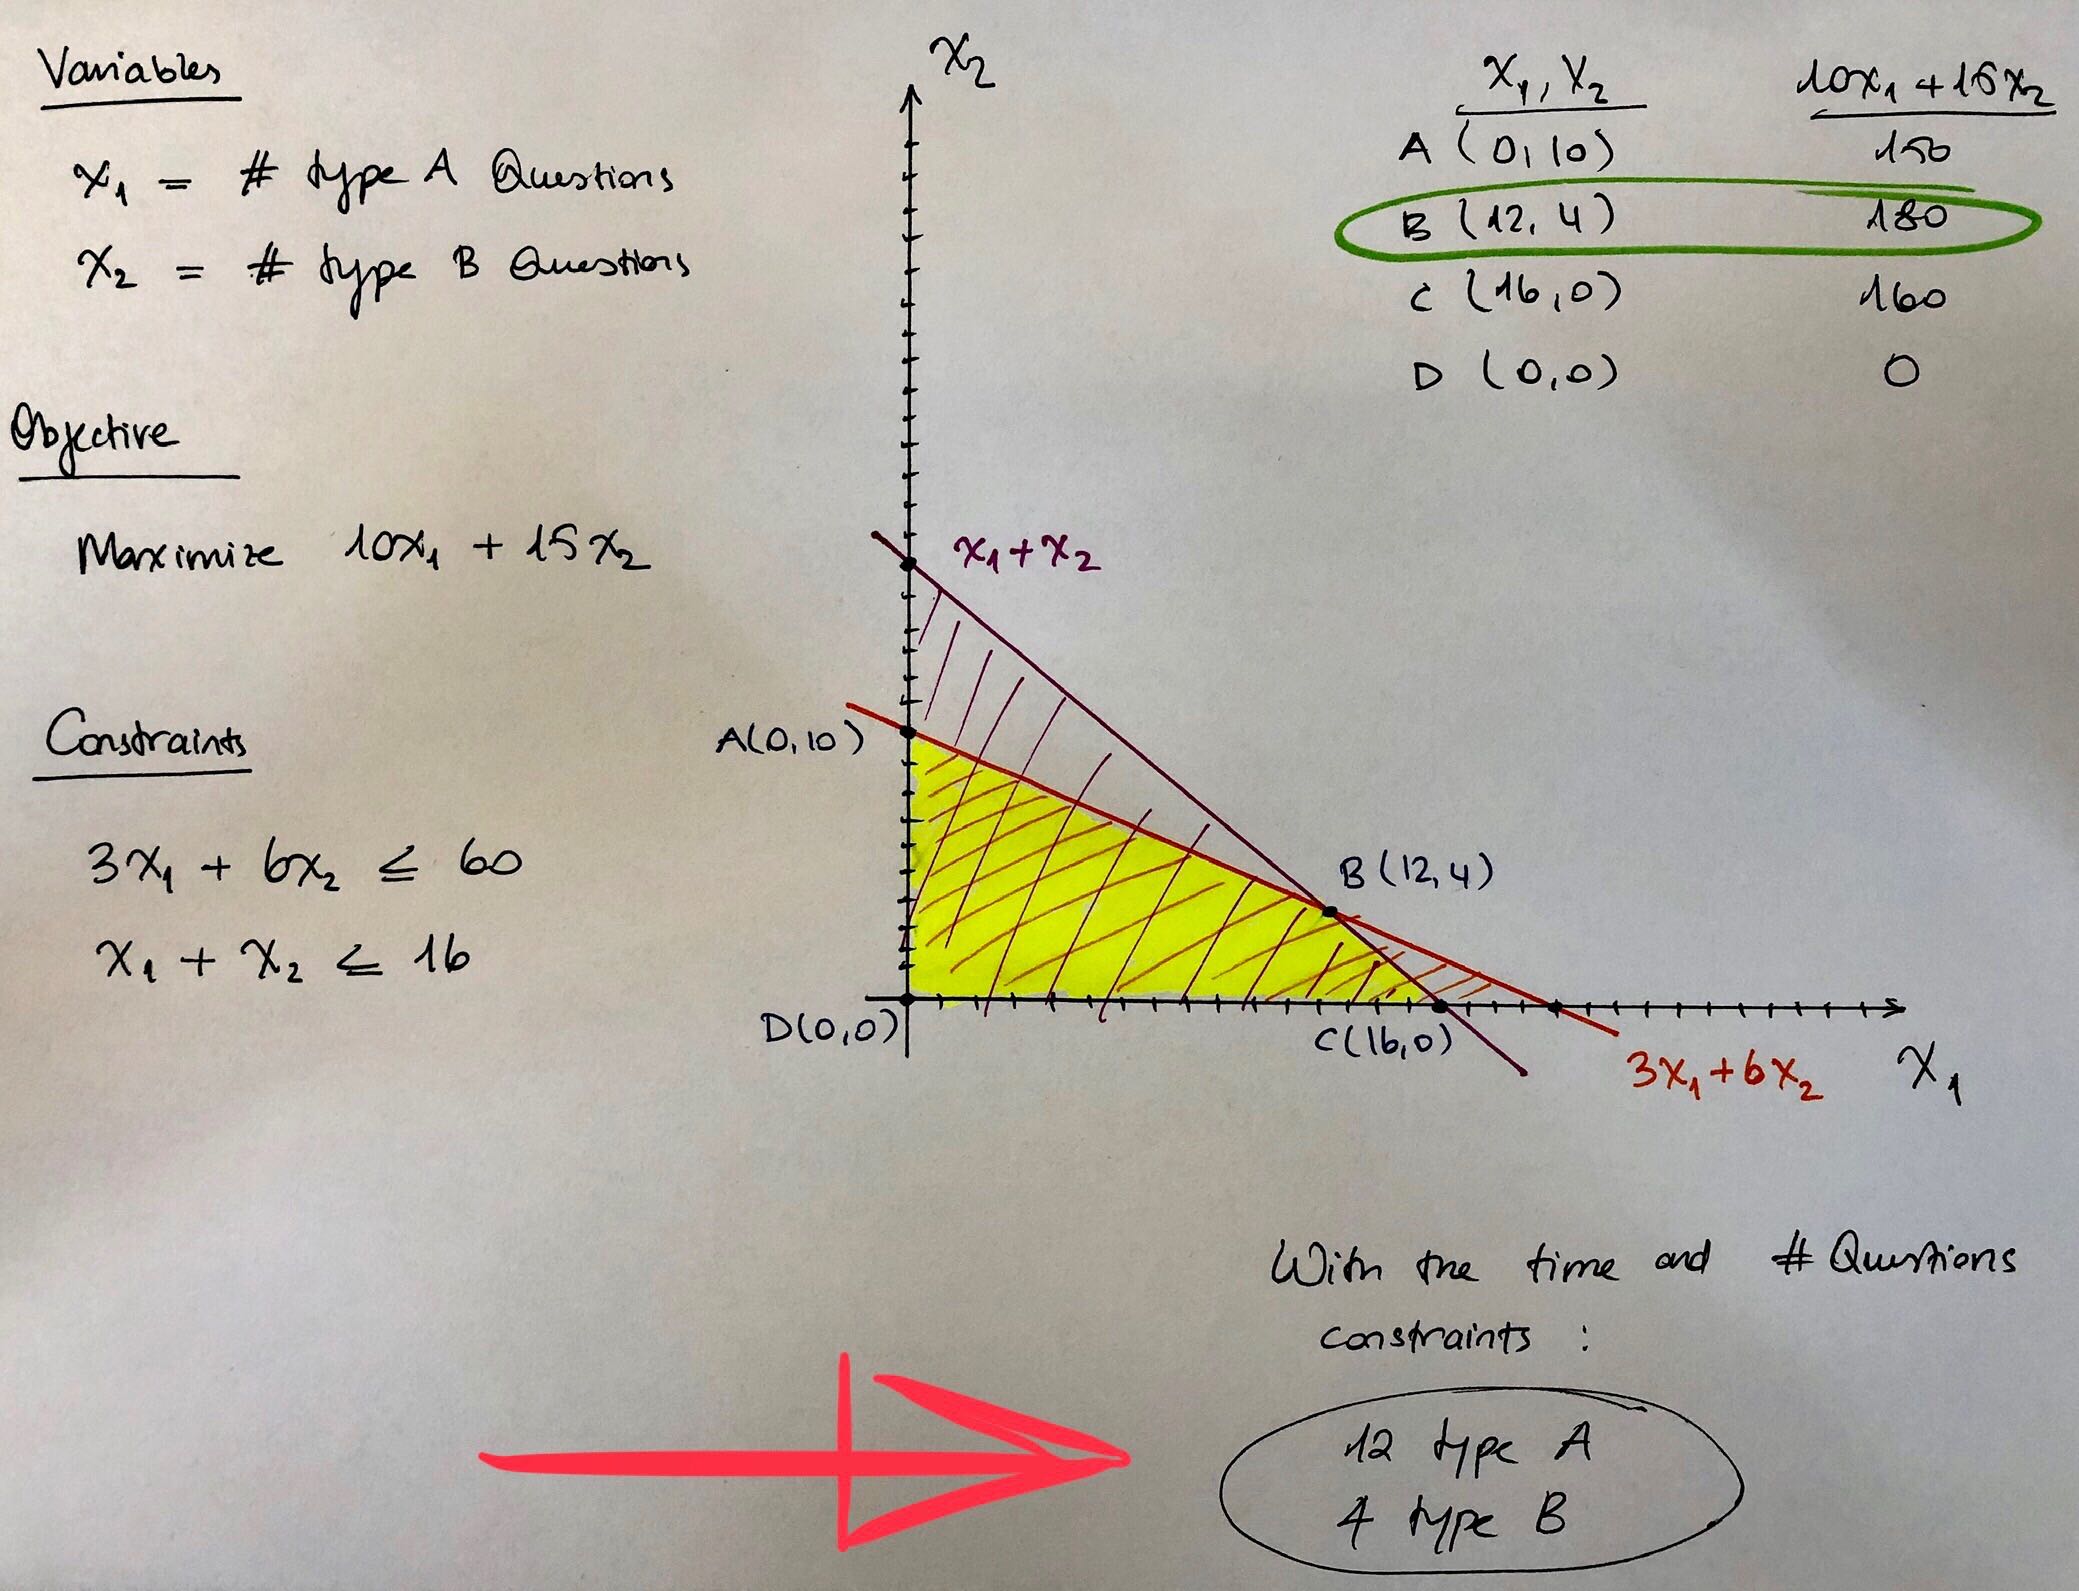 Variables
x₁ = # type A Questions
x₂ = # type B Questions
Objective
Maximize 10x₁ + 15x₂
Constraints
3x₁ + 6x₂ ≤ 60
x₁ + x₂ ≤ 16
x₂
x₁ + x₂
A(0,10)
B(12,4)
D(0,0)
C(16,0)
3x₁ + 6x₂
x₁
x₁, x₂ 10x₁ + 15x₂
A (0,10) 150
B (12,4) 180
C (16,0) 160
D (0,0) 0
With the time and # Questions
constraints :
12 type A
4 type B